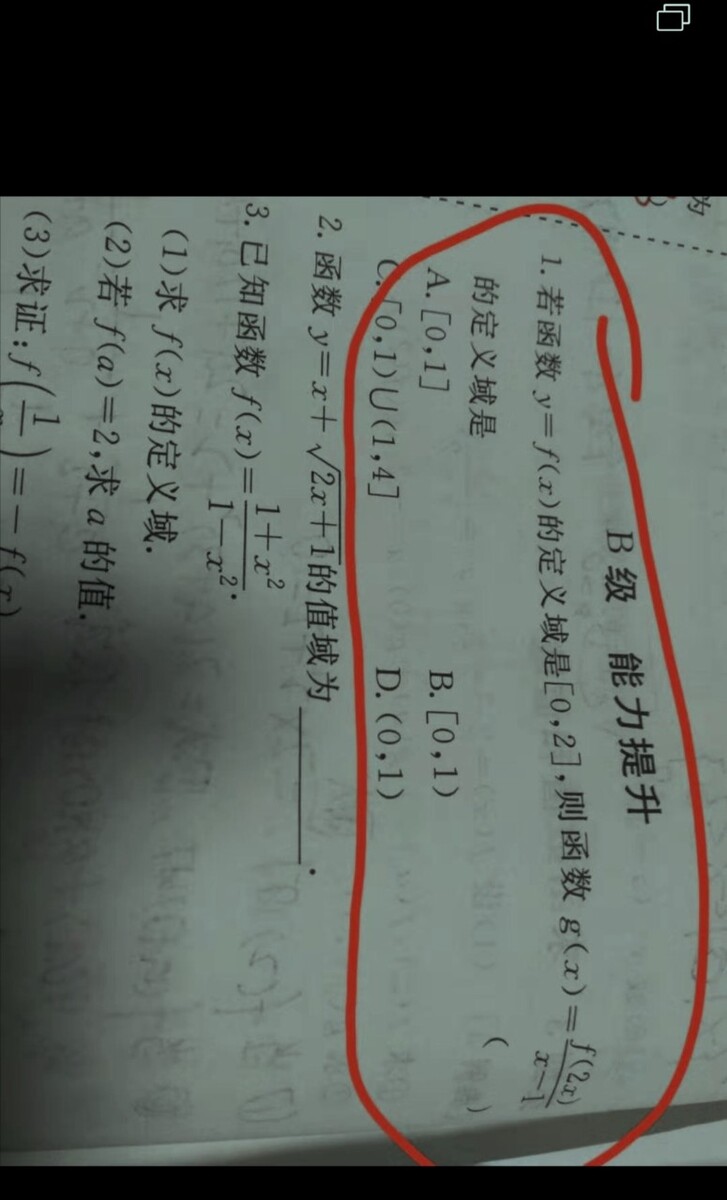 为
B级 能力提升
1.若函数 y=f(x)的定义域是[0,2],则函数 g(x)=\frac{f(2x)}{x-1}
的定义域是 ( )
A.[0,1] B.[0,1)
C.[0,1)∪(1,4] D.(0,1)
2.函数 y=x+\sqrt{2x+1}的值域为______.
3.已知函数 f(x)=\frac{1+x^2}{1-x^2}.
(1)求 f(x)的定义域.
(2)若 f(a)=2,求 a 的值.
(3)求证:f(\frac{1}{x})=-f(x)